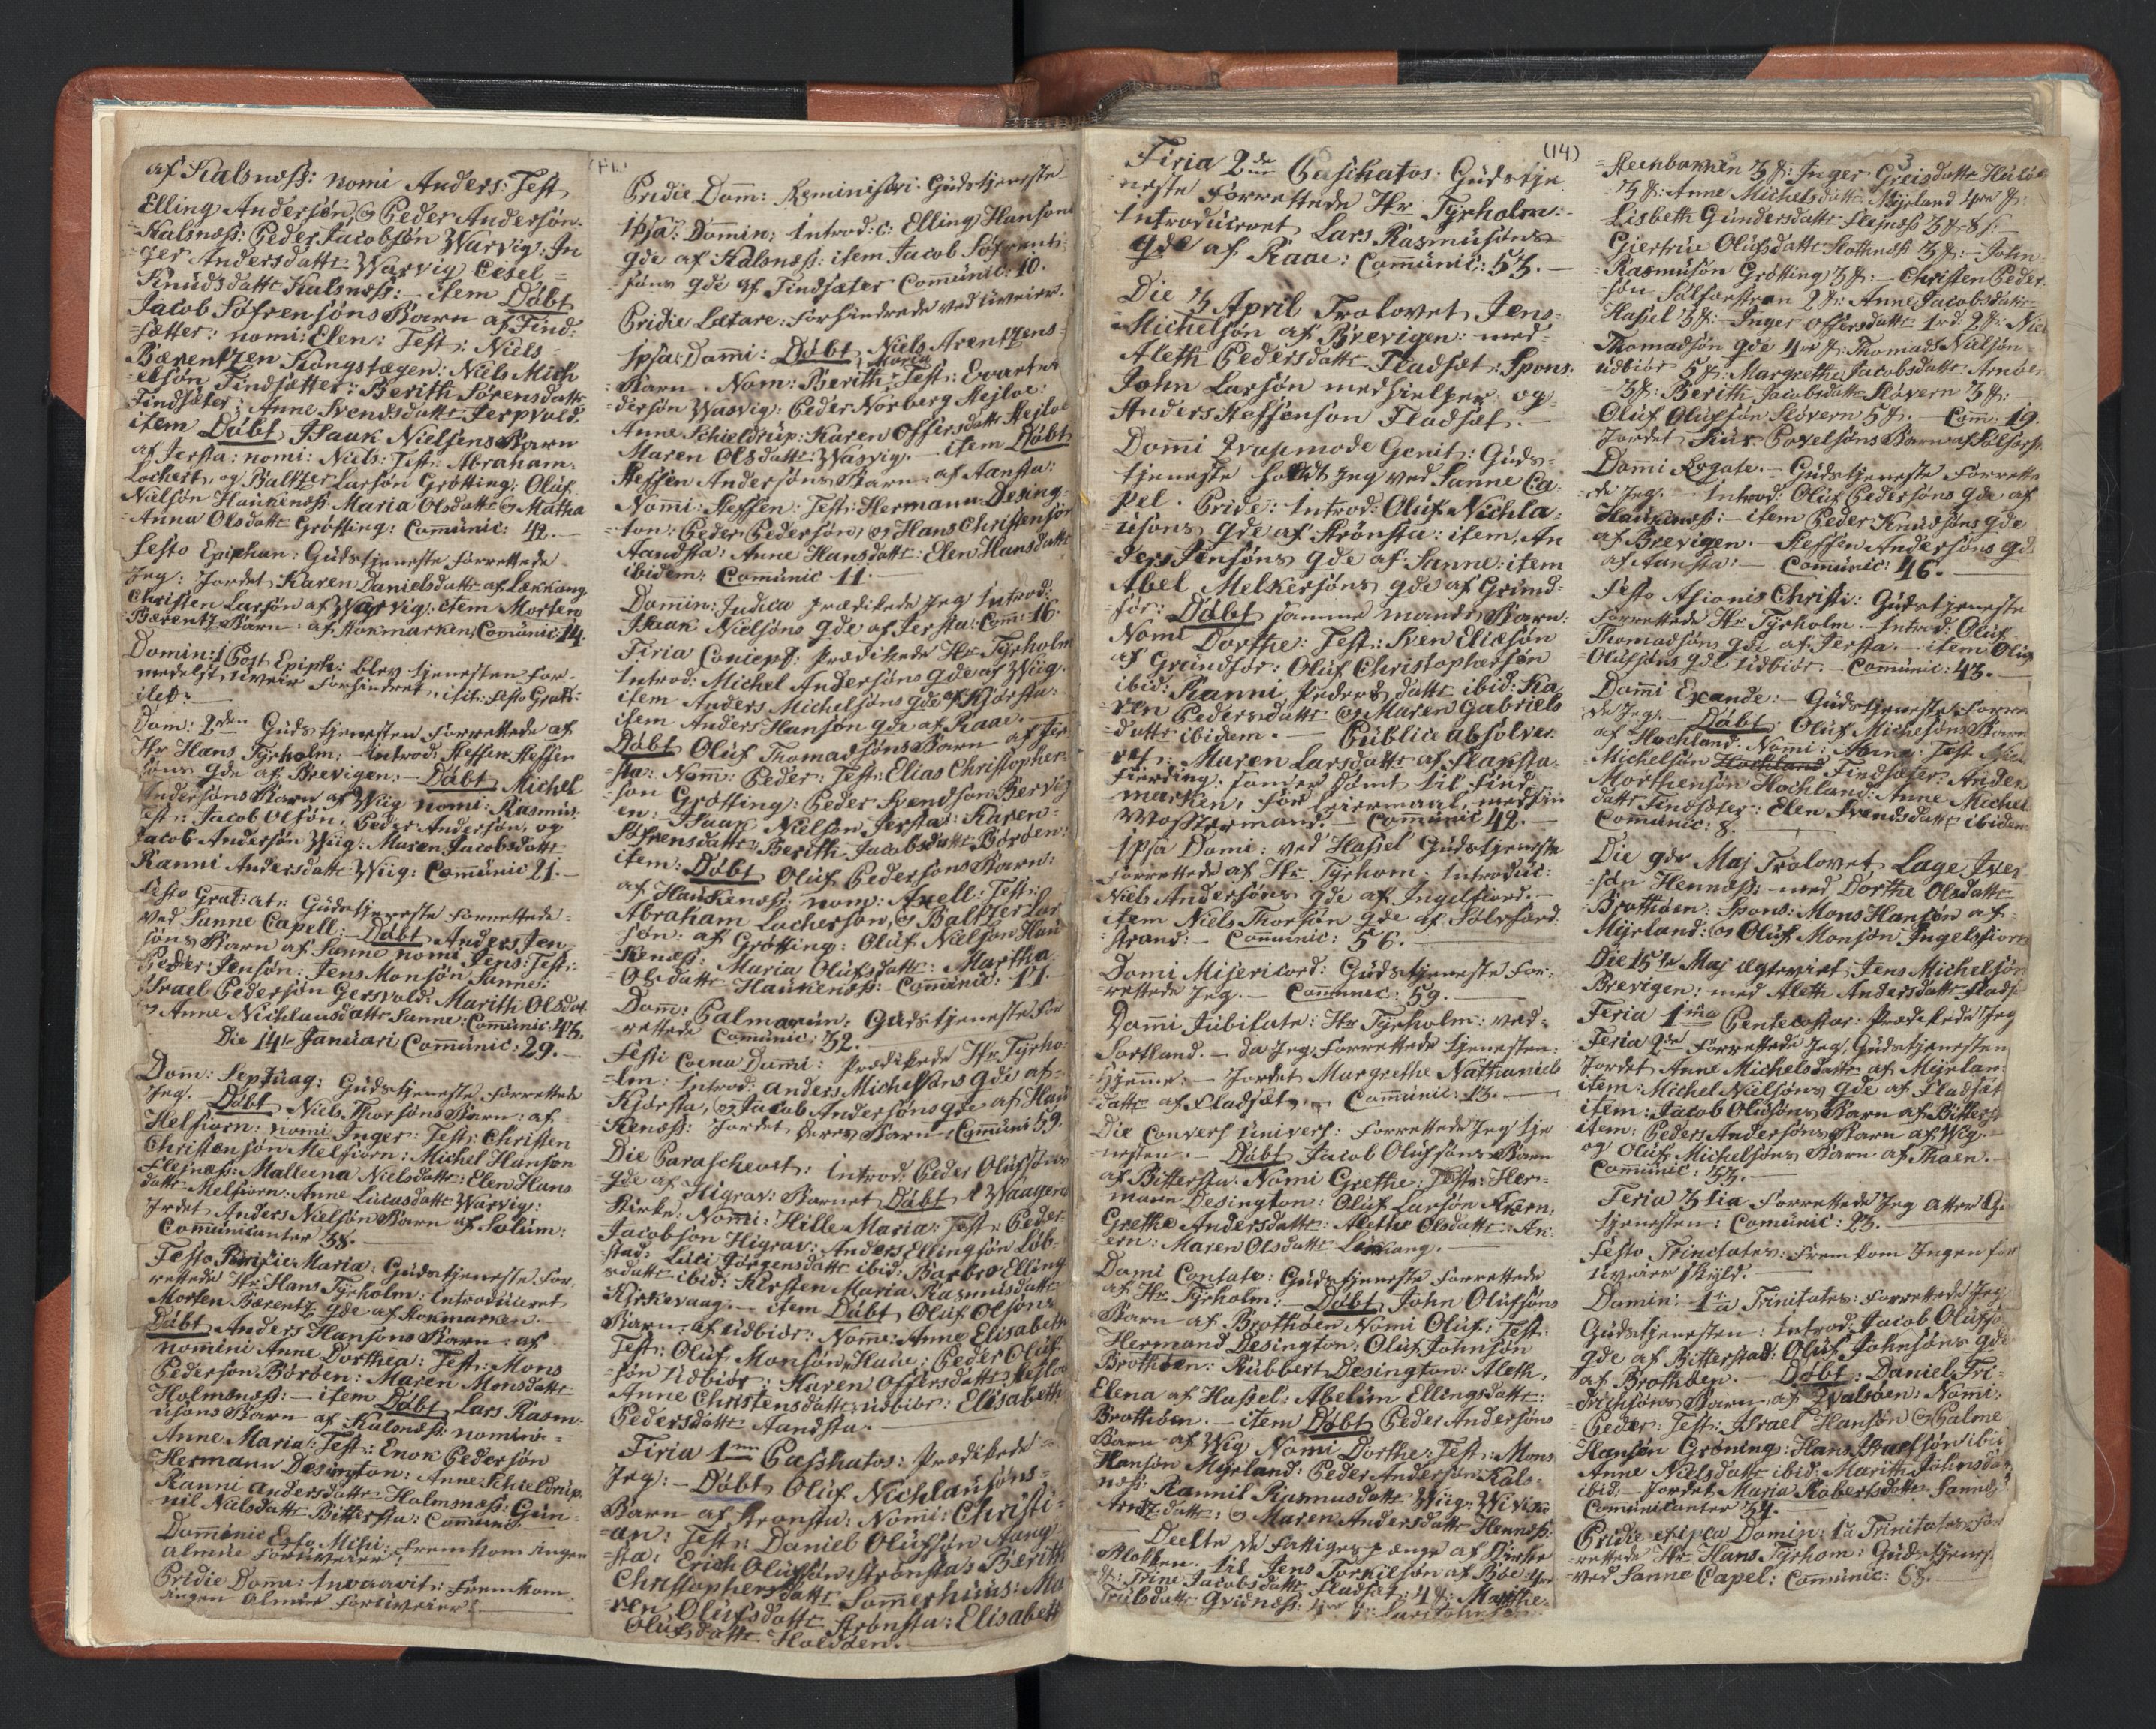 af Kalsness: nomi Anders: Test
Elling Andersøn, og Peder Andersøn.
Kalsness: Peder Jacobsøn Warvig: In
ger Andersdattr Warvig Cicel=
Knudsdattr Kalsness:– item Døbt
Jacob Søfrensøns Barn af Find=
sætter: nomi: Elen: Test: Niels
Bærentzen Kongstegen: Niels Mich
elsøn Findsætter: Berith Sørensdattr
Findsæter: Anne Svendsdattr Jerpvold.
item Døbt Isaak Nielsens Barn
af Jersta: nomi: Niels: Test: Abraham
Lochert, og Baltzer Larsøn Grøtting: Oluf
Nielsøn Haukenæss: Maria Olsdattr og Martha
Anna Olsdattr Grøtting: Comunic: 42.–
Festo Epiphan: Gudstjeneste forrettede
Jeg: Jordet Karen Danielsdattr af
Christen Larsøn af Warvig: item Morten
Bærentz Barn: af Stokmarken, Comunic: 14.
Domin: 1 Post Epiph: blev tjenesten for-
medelst uveir forhindret, 
Dom: 2den Gudstjenesten forrettede af
Hr Hans Tyrholm: Introd: Steffen Steffen
søns qde af Brevigen:– Døbt Michel
Andersøns Barn af Wiig nomi: Rasmus:
Test: Jacob Olsøn, Peder Andersøn, og
Jacob Andersøn Wiig: Maren Jacobsdattr
Ranni Andersdattr Wiig: Comunic 21.–
Gudstjeneste forrettede
ved Sanne Capell:– Døbt Anders Jen
søns Barn af Sanne nomi Jens: Test:
Peder Jensøn: Jens Monsøn Sanne:
Israel Pedersøn Gersvold: Marith Olsdat
og Anne Nichlausdattr Sanne: Comunic: 43.
Die 14te Januari Comunic: 29.–
Dom: Septuag: Gudstjeneste forrettede
Jeg. Døbt Niels Thorsøns Barn: af
Melfiorn: nomi Inger: Test: Christen
Christensøn Melfiorn: Michel Hansøn
Flesness: Malleena Nielsdattr: Elen Hans
dattr Melfiorn: Anne Lucasdattr Warvig:
Jordet Anders Nielsøn Barn af Solum:
Comunicanter 38.–
Festo Purific Maria: Gudstjeneste for
rettede Hr Hans Tyrholm: Introduceret
Morten Bærentz qde af Stokmarken.–
Døbt Anders Hansøns Barn: af
nomine Anne Dorthea: Test: Mons
Pedersøn Børøen: Maren Monsdattr
Holmsness:– item Døbt Lars Rasm-
usøns Barn af Kalsness: nomine=
Anne Maria: Test: Enok Pedersøn
Hermann Desington: Anne Schieldrup,
Ranni Andersdattr Holmsness: Gun-
nil Nielsdattr Bittersta: Comunic.
Dominic Esto Mihi: fremkom ingen
Almue for uveier!
Pridie Dom: Invocavit: fremkom
ingen Almue for uveier!
Pridie Dom: Reminisceri: Gudstjeneste
ipsa: Domin: Introd: c: Elling Hansøns
qde af Kalsness: item Jacob Søfrents-
søns qde af Findsæter Comunic: 10.
Pridie Lætare: forhindrede ved uveier.
Ipsa: Domi: Døbt Niels Arentzens
Barn. Nom: Berith Karen Test: Evart
dersøn Warvig: Peder Norberg Hejloe:
Anne Schieldrup: Karen Offersdattr Hejloe
Maren Olsdattr: Warvig.– item Døbt
Steffen Andersøns Barn: af Aansta:
Nomi: Steffen: Test: Hermann Desing-
ton: Peder Pedersøn, og Hans Christensøn
Aandsta: Anne Hansdattr: Elen Hansdattr
ibidem: Comunic 11.–
Domin: Judica prædikede Jeg Introd:
Isaak Nielsøns qde af Jersta: Com: 16.
Firia Concept: prædikede Hr Tyrholm
Introd: Michel Andersøns qde af Wiig.
item Anders Michelsøns qde af Kjørsta:
item Anders Hansøn qde af Raae.–
Døbt Oluf Thomadsøns Barn af Jer
sta: Nom: Peder: Test: Elias Christopher-
søn Grøtting: Peder Svendsøn Bervig
en:– Isaak Nielsøn Jersta: Karen
Søfrensdattr: Berith Jacobsdattr Børøen:
item: Døbt Oluf Pedersøns Barn:
af Haukenæss: nom: Axell: Test:
Abraham Lochersøn, og Baltzer Lar
søn: af Grøtting: Oluf Nielsøn Hau
kenæss: Maria Olufsdattr: Martha
Olsdattr Haukenæss: Comunic: 17.
Dom: Palmarum: Gudstjeneste for
rettede Comunic: 32.
Festi Coena Domi: Prædikede Hr Tyrho-
lm: Introd: Anders Michelsøns qde af
Kjørsta, og Jacob Andersøns qde af Hau
kenæss: Jordet deres Barn: Comunic 59.
Die Parascheves: Introd: Peder Olufsøns
qde af Higrav: Barnet Døbt i Waagens
Kirke: Nomi: Hille Maria: Test: Peder
Jacobsøn Higrav: Anders Ellingsøn Løb-
stad: Luci Jørgensdattr ibid: Barbro Elling
sdattr ibid: Kirsten Maria Rasmusdattr
Kirkevaag.– item Døbt Oluf Olsøns
Barn: af udbiør: Nomi: Anne Elisabeth
Test: Oluf Monsøn, Peder Oluf-
søn udbiør: Karen Offersdattr Hejloe
Anne Christensdattr, udbiør: Elisabeth
Pedersdattr Aandsta.–
Firia 1ma Paschatos: Prædikede
Jeg:– Døbt Oluf Nichlausøns
Barn af Strønsta: Nomi: Christi-
an: Test: Daniel Olufsøn Aang
sta: Erich Olufsøn Strønsta: Berith
Christophersdattr Sommerhuus: Ma
ren Olufsdattr Strønsta: Elisabeth
Olufsdattr Holdøen.–
(14)
Firia 2de Paschatos: Gudstje
neste forrettede Hr Tyrholm:
Introduceret Lars Rasmusøns
qde af Raae: Comunic: 53.–
Die 3 April Trolovet Jens
Michelsøn af Brevigen: med
Aleth Pedersdattr Fladset: Spons.
John Larsøn medhielper og
Anders Steffensøn Fladset.–
Domi Qvasimodo Genit: Guds-
tjeneste holdt Jeg ved Sanne Ca-
pel. Pride: Introd: Oluf Nichla-
usøns qde af Strønsta: item, An
ders Jensøns qde af Sanne: item
Abel Melkersøns qde af Grund-
før: Døbt samme mands Barn:
Nomi Dorthe: Test: Sven Eliesøn
af Grundfør: Oluf Christophersøn
ibid: Ranni Pedersdattr ibid: Ka
ren Pedersdattr og Maren Gabriels
dattr ibidem.– Publice absolver
ret: Maren Larsdattr af Flaksta-
fierding: som er dømt til Find-
marken, for Leiermaal, med sin
Mostermand.– Comunic 42.–
ipsa Domi: ved Hassel Gudstjeneste
forrettede af Hr Tyrhom: Introduc:
Niels Andersøns qde af Ingelfiord.–
item Niels Thorsøn qde af Sølvfærd-
strand:– Comunic: 56.–
Domi Misericord: Gudstjeneste for-
rettede Jeg.– Comunic: 59.–
Domi Jubilate: Hr Tyrholm: ved
Sortland.– da Jeg forrettede tjenesten
hjemme:– Jordet Margrethe Nathaniels
dattr af Fladset, Comunic: 23.–
Die Convers univers: forrettede Jeg tje
nesten.– Døbt Jacob Olufsøns Barn
af Bittersta: Nomi Grethe: Test: Her-
mann Desington: Oluf Larsøn
Grethe Andersdattr: Alethe Olsdattr:
Maren Olsdattr
Domi Cantate: Gudstjeneste forrettede
af Hr Tyrholm:– Døbt John Olufsøns
Barn af Brothøen Nomi Oluf: Test:
Hermand Desington: Oluf Johnsøn
Brothøen: Rubbert Desington: Aleth-
Elena af Hassel: Abelun Ellingsdattr:
Brothøen.– item Døbt Peder Andersøns
Barn af Wig Nomi Dorthe: Test: Mons
Hansøn Myrland: Peder Andersøn Kals-
næss: Rannil Rasmusdattr Wiig:
Arntzdattr: og Maren Andersdattr Hennæss:
Deelte de fattiges penge af Kirke
blokken. til Jens Torkilsøn af Bøe: 4re
: Trine Jacobsdattr Fladset: 4 : Marithe
Trulsdattr
Steenbonnen 3 : Inger Greisdattr
3 : Anne Michelsdattr Myrland 4re :
Lisbeth Gundersdattr Flesnæss 3
Giertrue Olufsdattr 3 :– John
Rasmusøn Grøtting 3 :– Christen Peder
søn 2 : Anne Jacobsdattr
Hassel 3 :– Inger Offersdattr 2 : Niels
Thomadsøn qde 4re : Thomads Nielsøn
udbiør 5 : Margrethe Jacobsdattr
3 : Berith Jacobsdattr Skovern 3 :
Oluf Olufsøn Skovern 5 .– Com: 19.
Jordet Povelsøns Barn af
Domi Rogate.– Gudstjeneste forrette
de Jeg. Introd: Oluf Pedersøns qde af
Haukenæss:– item Peder Knudsøns qde
af Brevigen.– Steffen Andersøns qde
af Aansta:– Comunic: 46.–
Festo Asionis Christi: Gudstjeneste
forrettede Hr Tyrholm.– Introd: Oluf
Thomadsøns qde af Jersta.– item Oluf
Olufsøns qde udbiør.– Comunic: 43.–
Domi Exaude:– Gudstjeneste forre
de Jeg.– Døbt: Oluf Michelsøns Barn
af Hochland. Nomi: Test
Michelsøn Hochland Findsæter: Anders
Morthensøn Hochland: Anne Michel
dattr Findsæter: Elen Svendsdattr ibidem
Comunic: 8.–
Die 9de Maj Trolovet Lage Iver
søn Hennæss: med Dorthe Olsdattr
Brothøen: Spons: Mons Hansøn af
Myrland: og Oluf Monsøn Ingelsfiorn
Die 15te Maj ægteviet, Jens Michelsøn
Brevigen: med Aleth Andersdattr Flads
Feria 1ma Pentecostar: Prædikede Jeg
Feria 2de Forrettede Jeg, Gudstjenesten
Jordet Anne Michelsdattr af Myrlan
item: Michel Nielsøns qde af Fladset
item: Jacob Olufsøns Barn af Bitters
item: Peder Andersøns Barn af Wig.–
og Oluf Michelsøns Barn af Thaen.–
Comunic: 53.–
Feria 3tia forrettede Jeg atter G-
tjenesten: Comunic: 23.–
Festo Trinitates: fremkom Ingen for
uveier skyld.–
Domin: 1ta Trinitates: forrettede Jeg
Gudstjenesten: Introd: Jacob Olufsø
qde af Bitterstad: Oluf Johnsøns qde
af Brothøen.– Døbt: Daniel Fri-
drichsøns Barn af Qvalsøen: Nomi:
Peder: Test: Israel Hansøn og Halme
Hansøn Grøning: Hans Israelsøn ibid
Anne Nielsdattr ibid: Marith Johnsdat
ibid:– Jordet Maria Robertsdattr Sannd,
Comunicanter 34.–
Pridie et ipsa Domin: 1ta Trinitates for
rettede Hr Hans Tyrhom: Gudstjenest
ved Sanne Capel: Comunic: 68.–